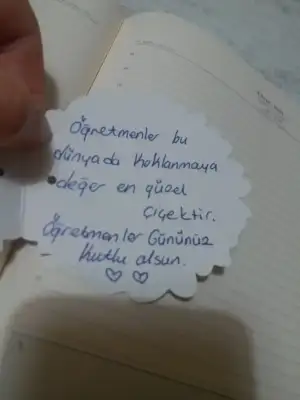 Öğretmenler bu
dünyada koklanmaya
değer en güzel
çiçektir.
Öğretmenler Gününüz
Kutlu olsun.
♡ ♡